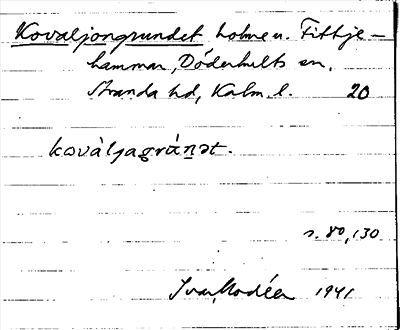 Kovaljongrundet holme u. Fittje-
hammar, Döderhults sn,
Stranda hd, Kalm. l. 20
kovàljagrún̲ət.
s. 80, 130
Ivar Modéer 1941